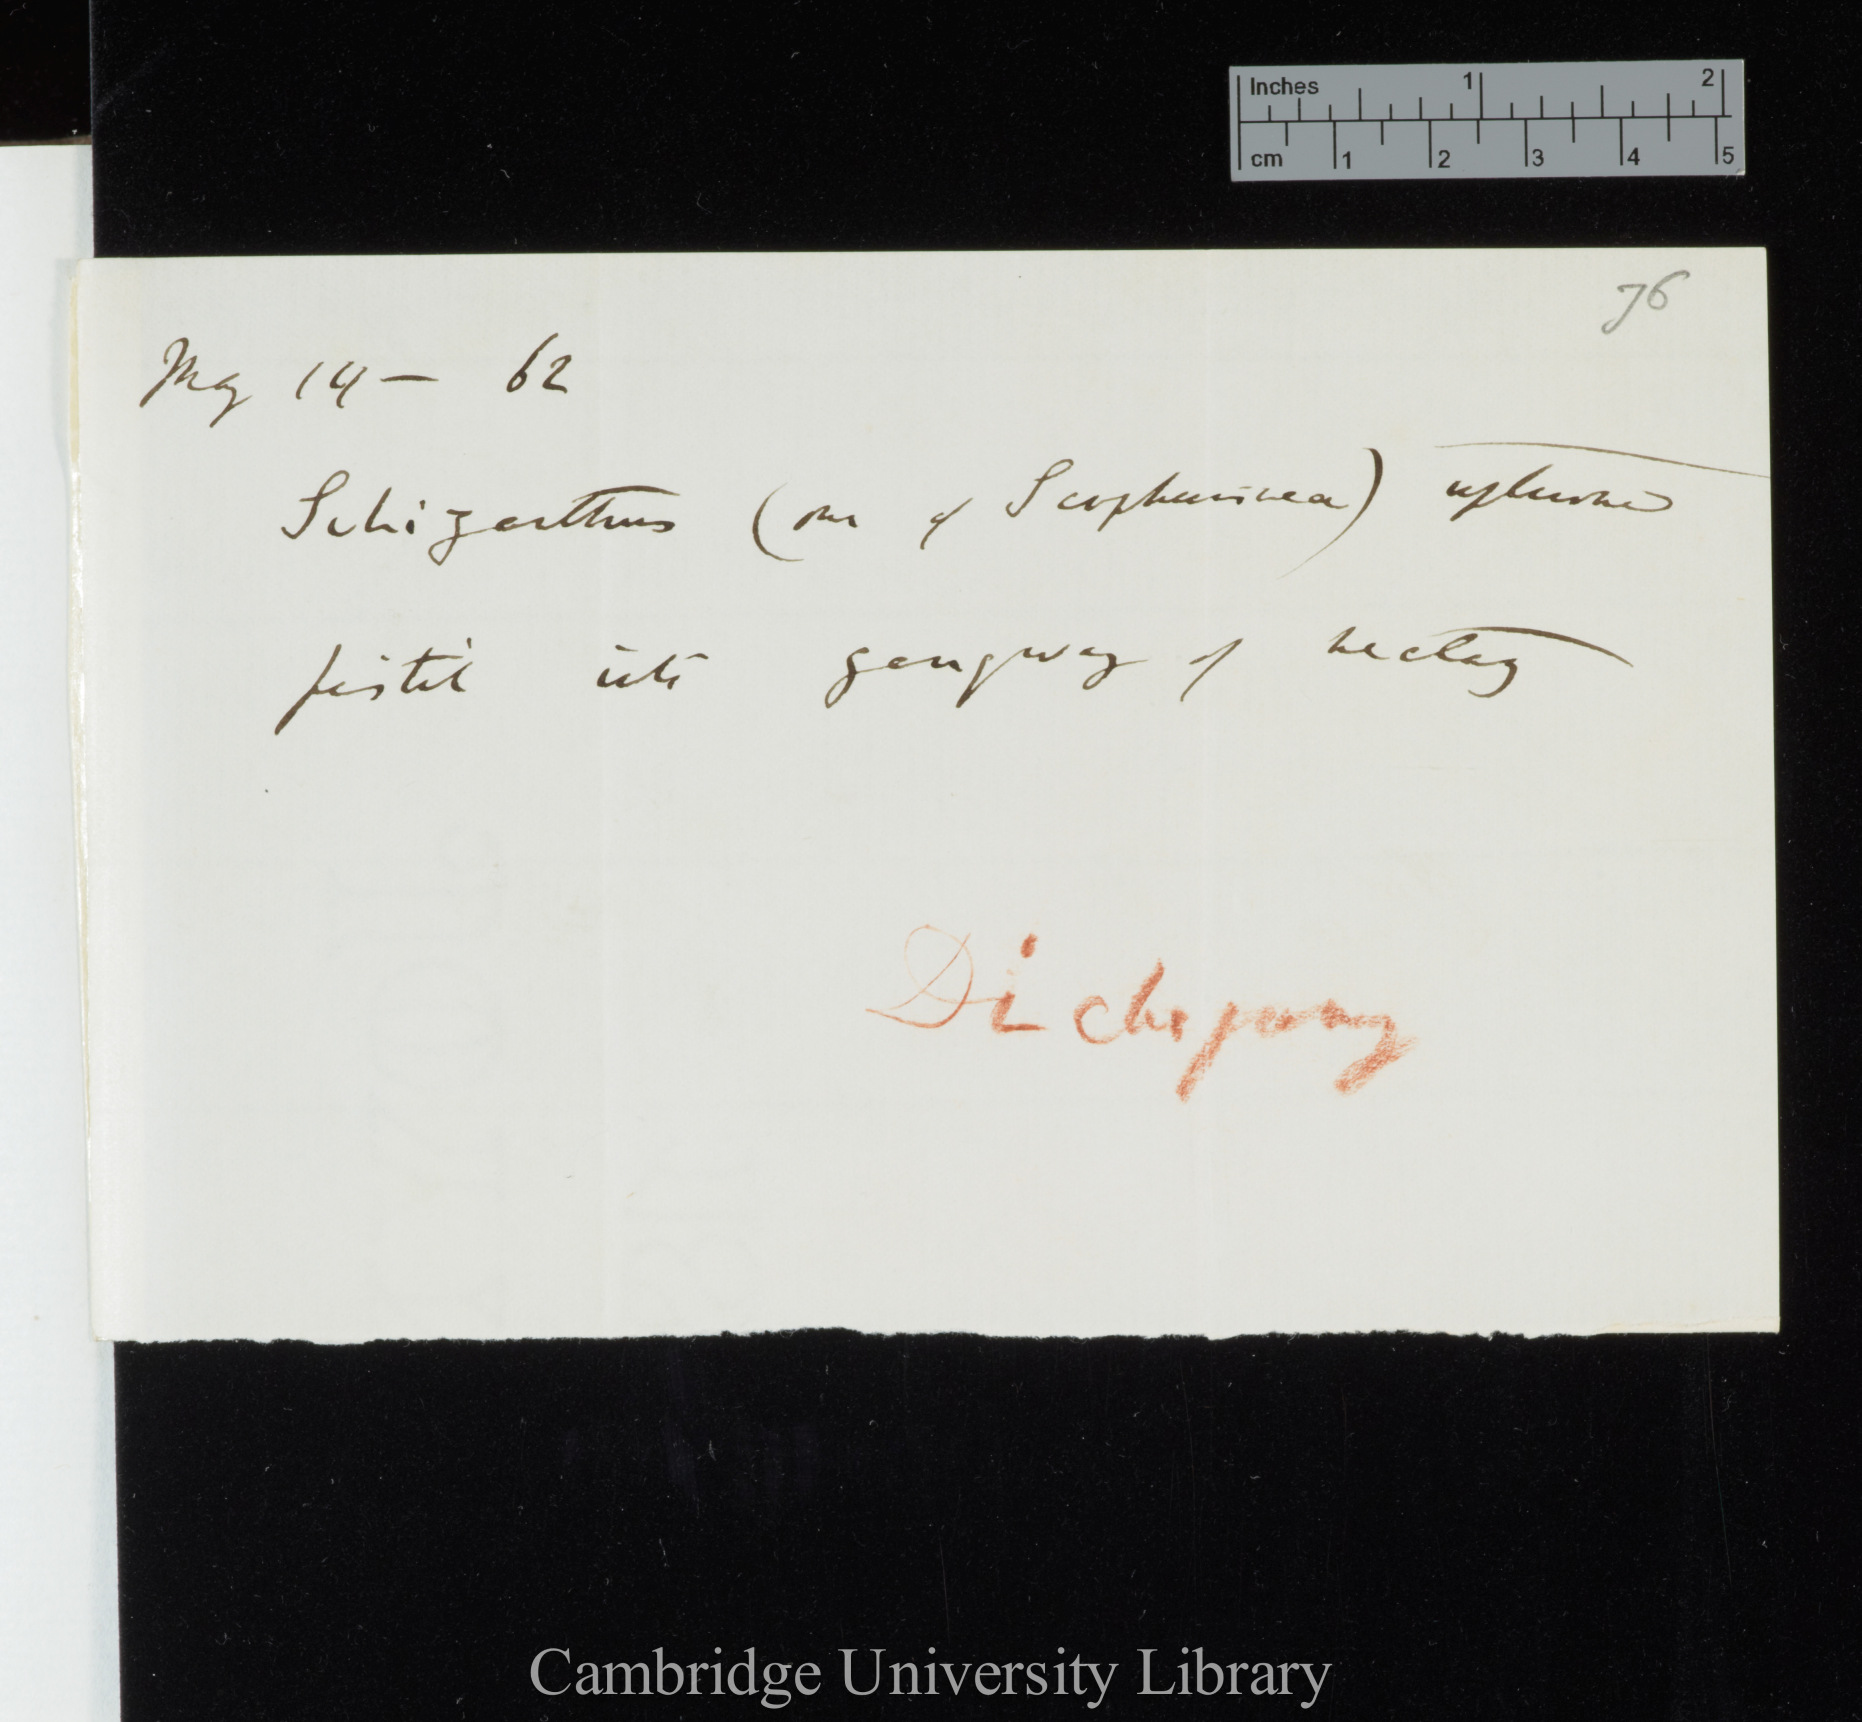 Inches 1 2
cm 1 2 3 4 5
76
May 14 — 62
Schizanthus (one of Scrophularinea)
pistil into gangway of nectary
Dichogamy
Cambridge University Library